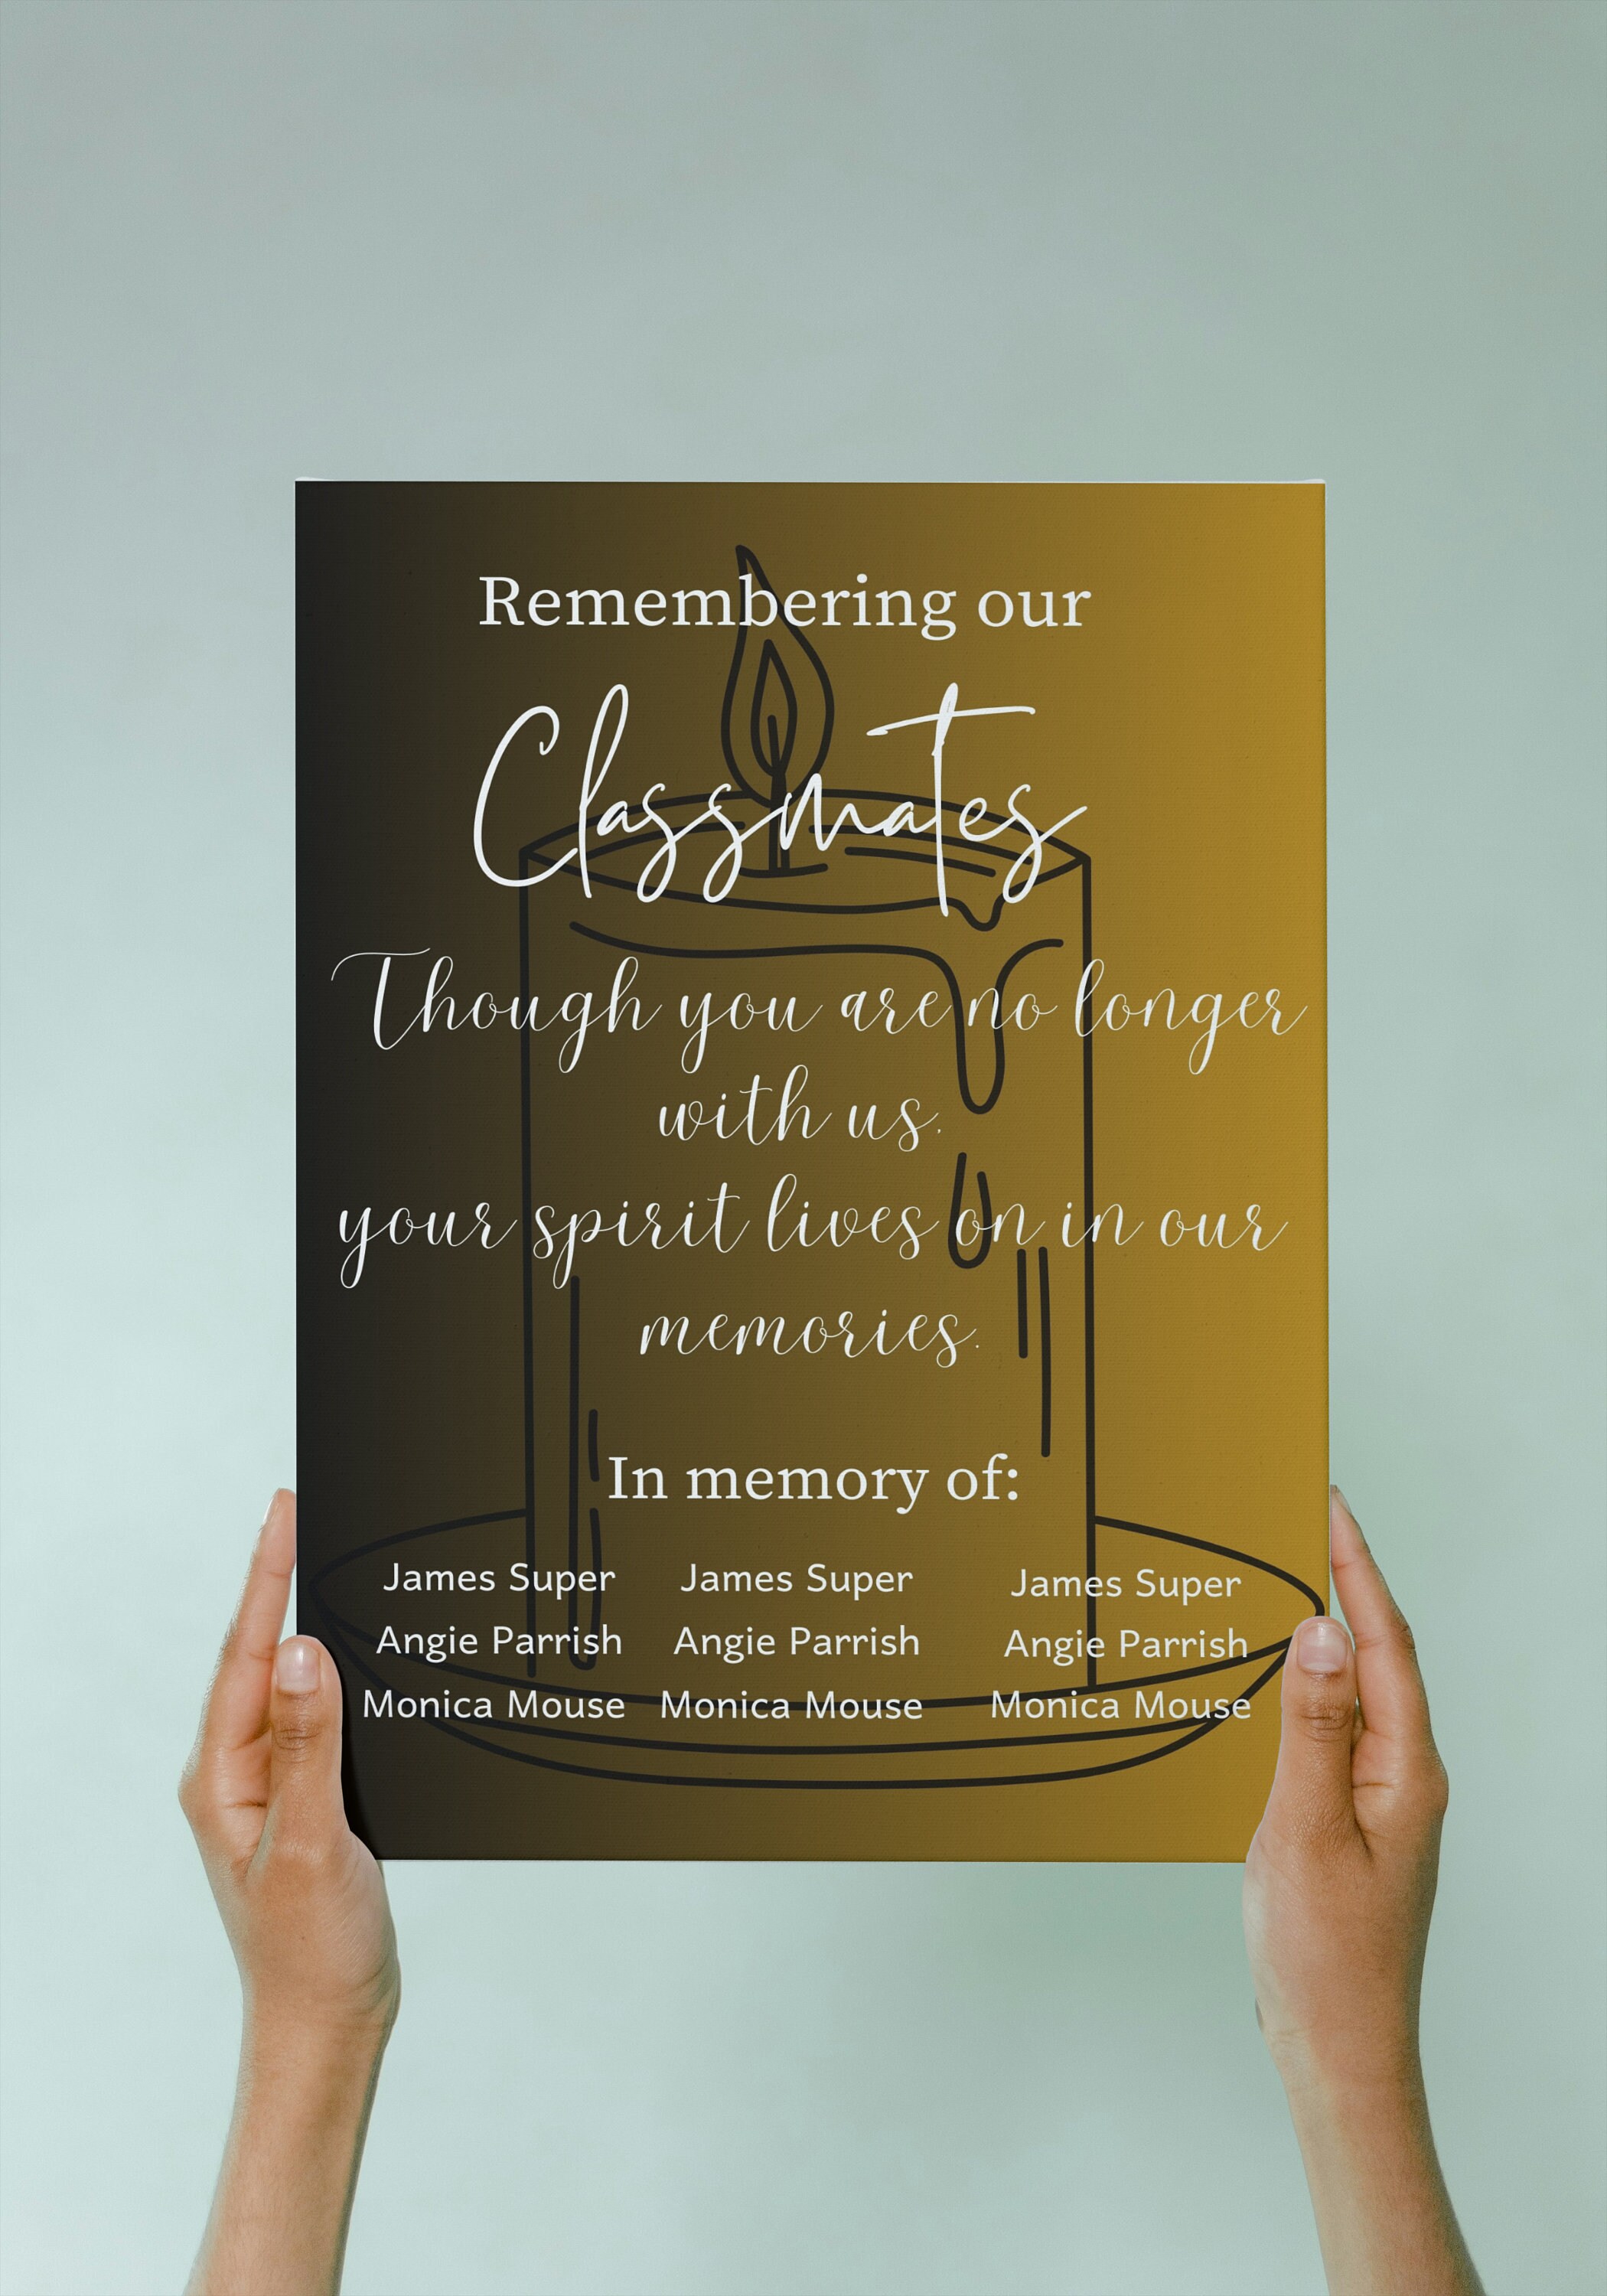 Remembering our
Classmates
Though you are no longer
with us,
your spirit lives on in our
memories.
In memory of:
James Super James Super James Super
Angie Parrish Angie Parrish Angie Parrish
Monica Mouse Monica Mouse Monica Mouse